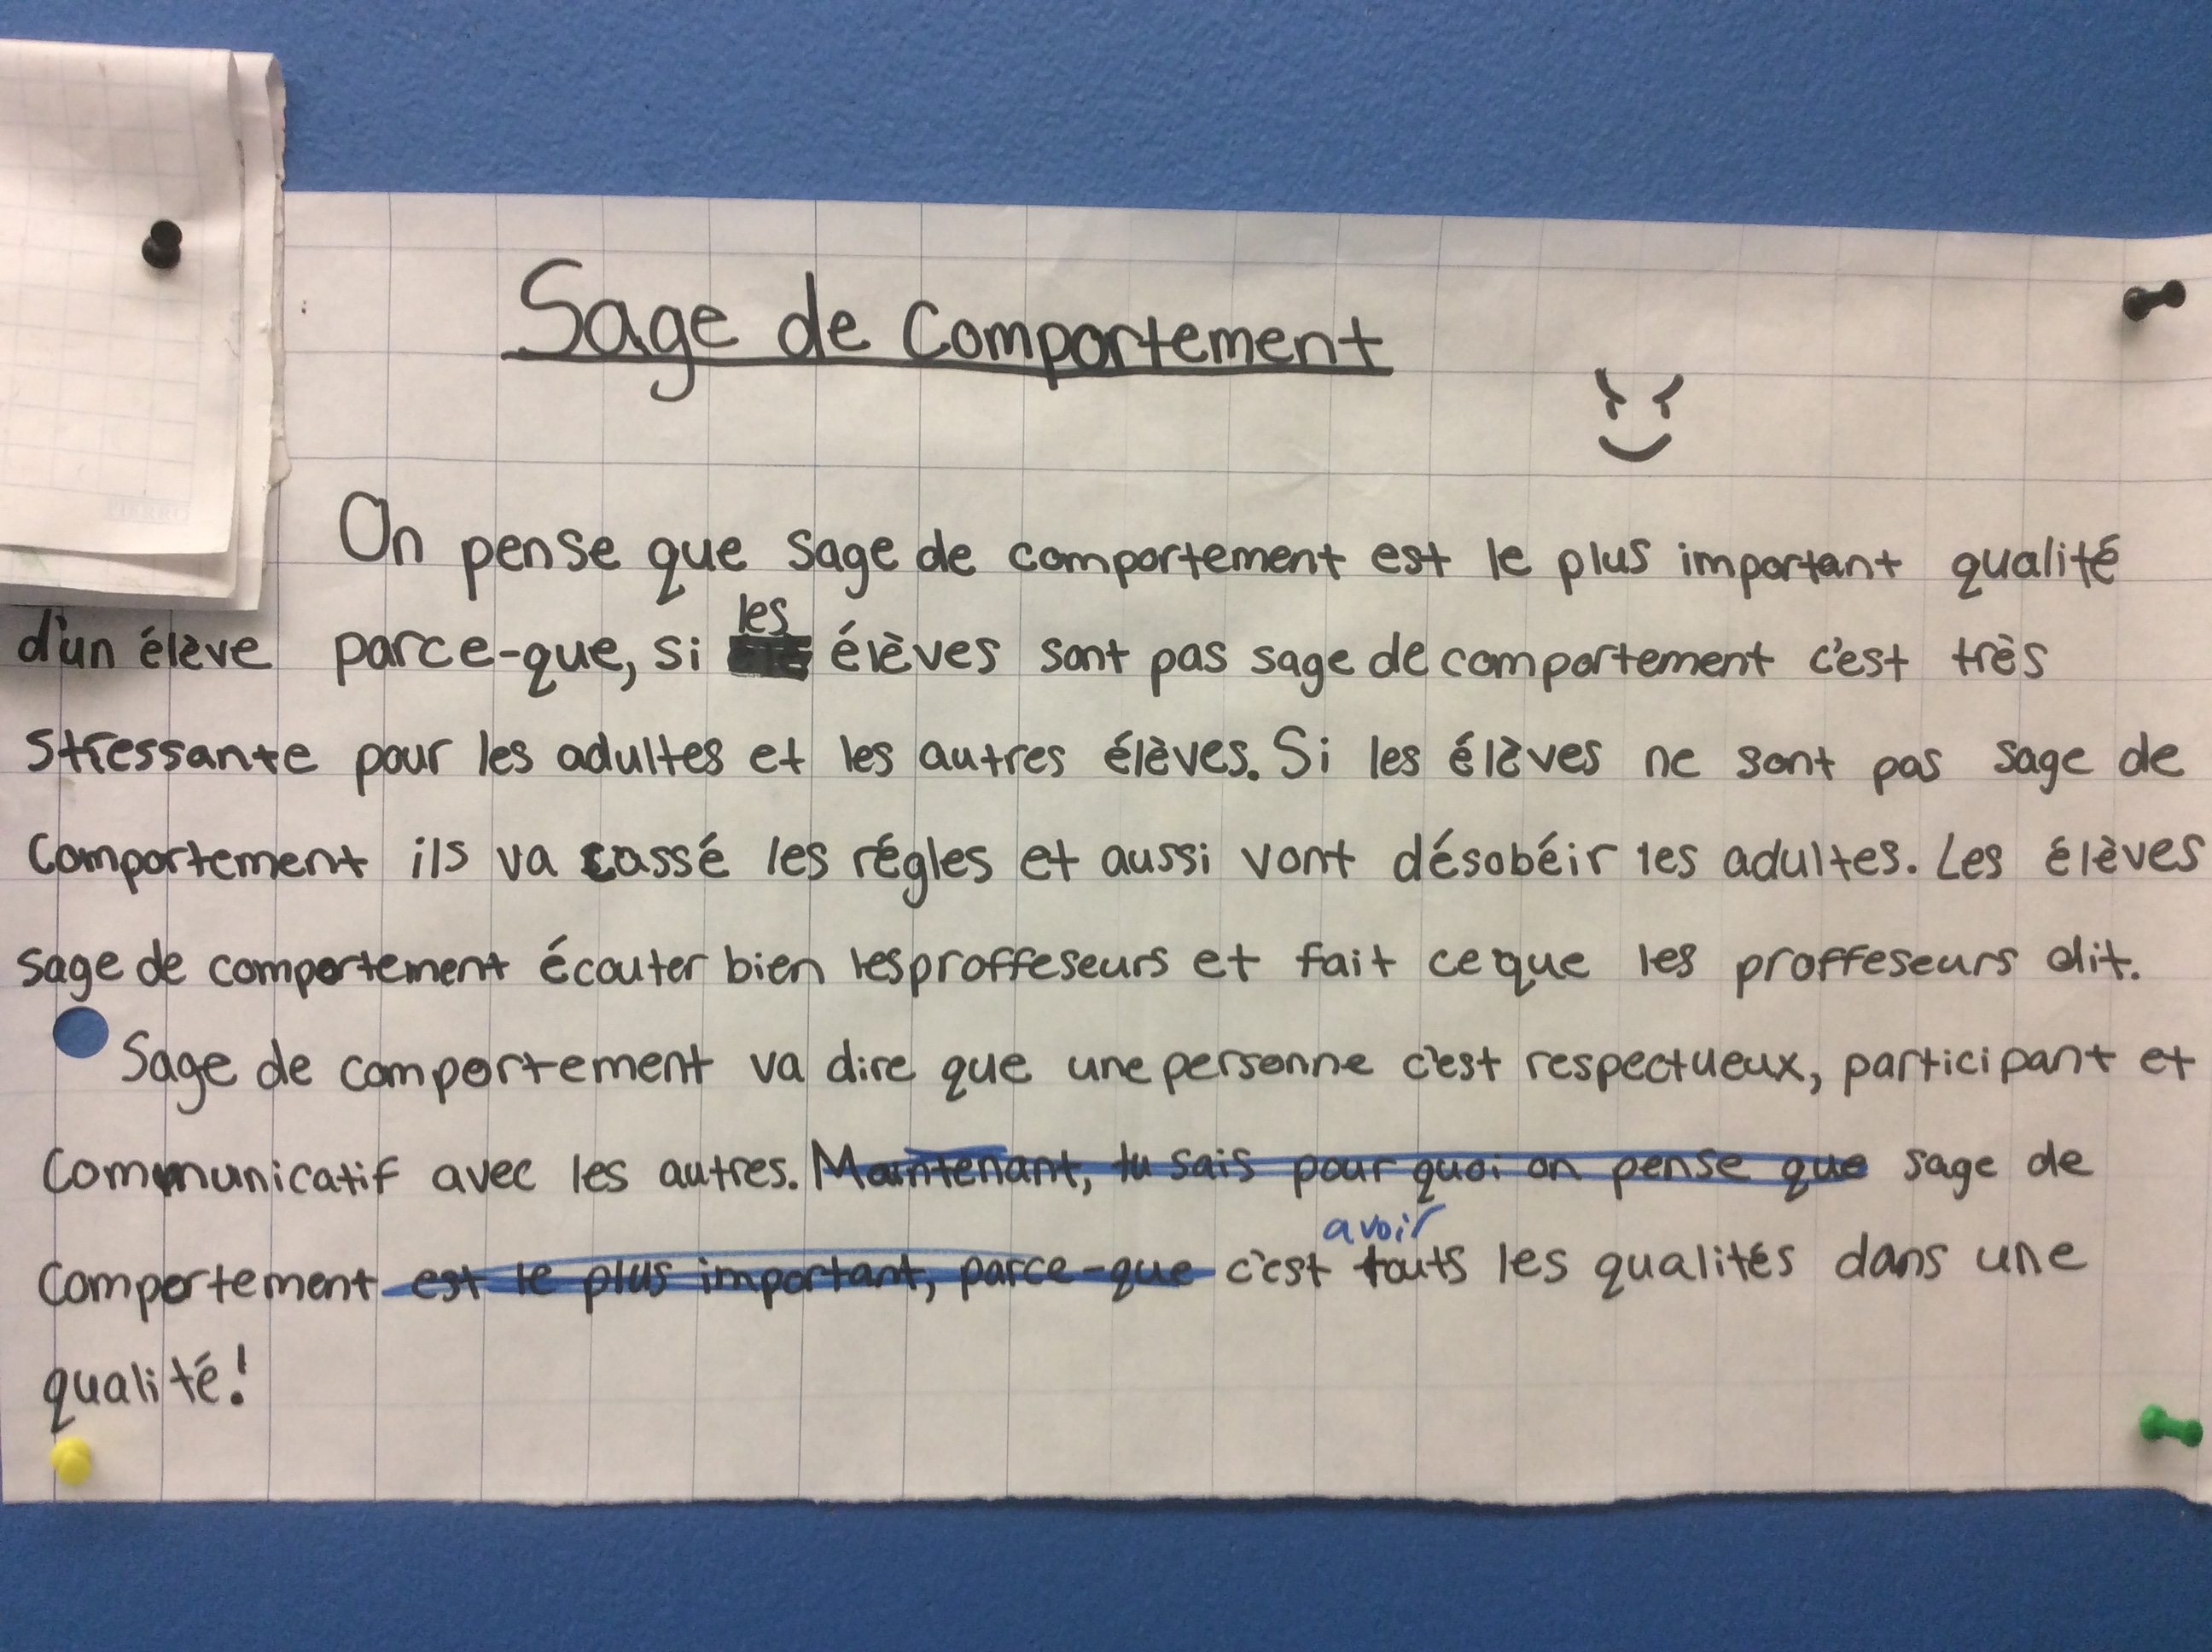 Sage de Comportement
On pense que sage de comportement est le plus important qualité
d'un élève parce-que, si les élèves sont pas sage de comportement c'est très
stressante pour les adultes et les autres élèves. Si les élèves ne sont pas sage de
comportement ils va cassé les régles et aussi vont désobéir les adultes. Les élèves
sage de comportement écouter bien les proffeseurs et fait ce que les proffeseurs dit.
Sage de comportement va dire que une personne c'est respectueux, participant et
communicatif avec les autres. Maintenant, tu sais pour quoi on pense que sage de
comportement est le plus important, parce-que c'est avoir touts les qualités dans une
qualité!